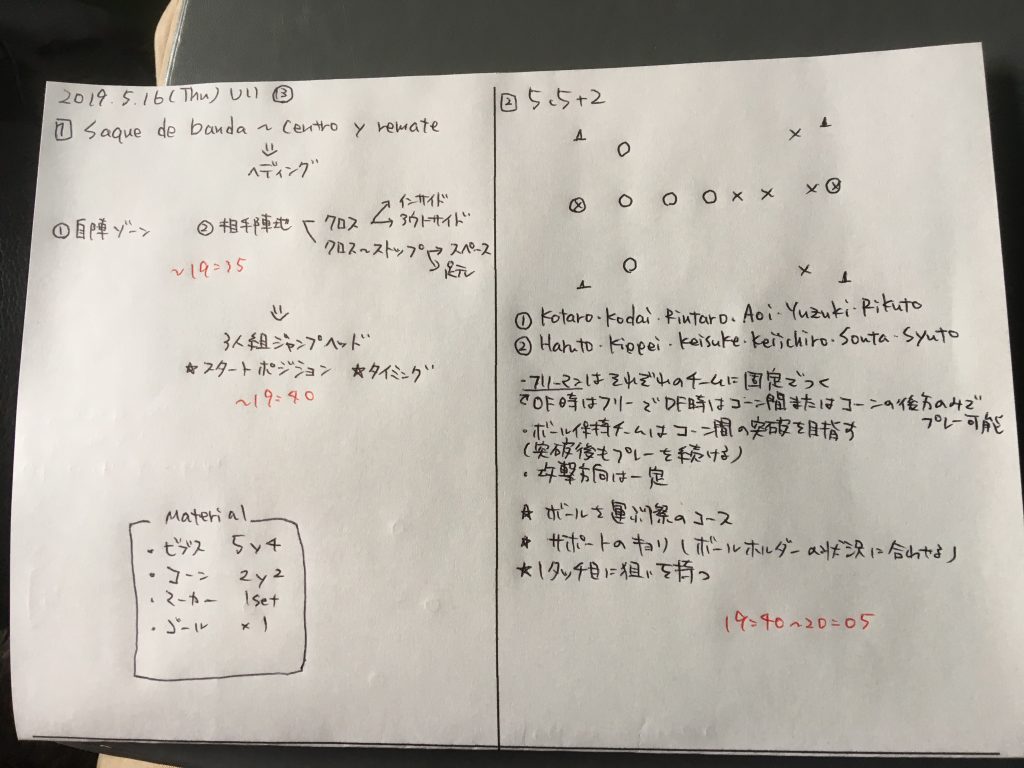 2019.5.16(Thu) U11 ③
1 Saque de banda ~ Centro y remate
⇓
ヘディング
①自陣ゾーン
②相手陣地
クロス
インサイド
アウトサイド
クロス~ストップ
スペース
足元
~19:35
⇓
3人組ジャンプヘッド
☆スタートポジション ☆タイミング
~19:40
Material
・ビブス 5y4
・コーン 2y2
・マーカー 1set
・ゴール ×1
2 5v5+2
①Kotaro・Kodai・Rintaro・Aoi・Yuzuki・Rikuto
②Haruto・Kippei・Keisuke・Keiichiro・Souta・Syuto
・フリーマンはそれぞれのチームに固定でつく
OF時はフリーでDF時はコーン間またはコーンの後方のみで
プレー可能
・ボール保持チームはコーン間の突破を目指す
(突破後もプレーを続ける)
・攻撃方向は一定
☆ ボールを運ぶ際のコース
☆ サポートのキョリ(ボールホルダーの状況に合わせる)
☆1タッチ目に狙いを持つ
19:40~20:05